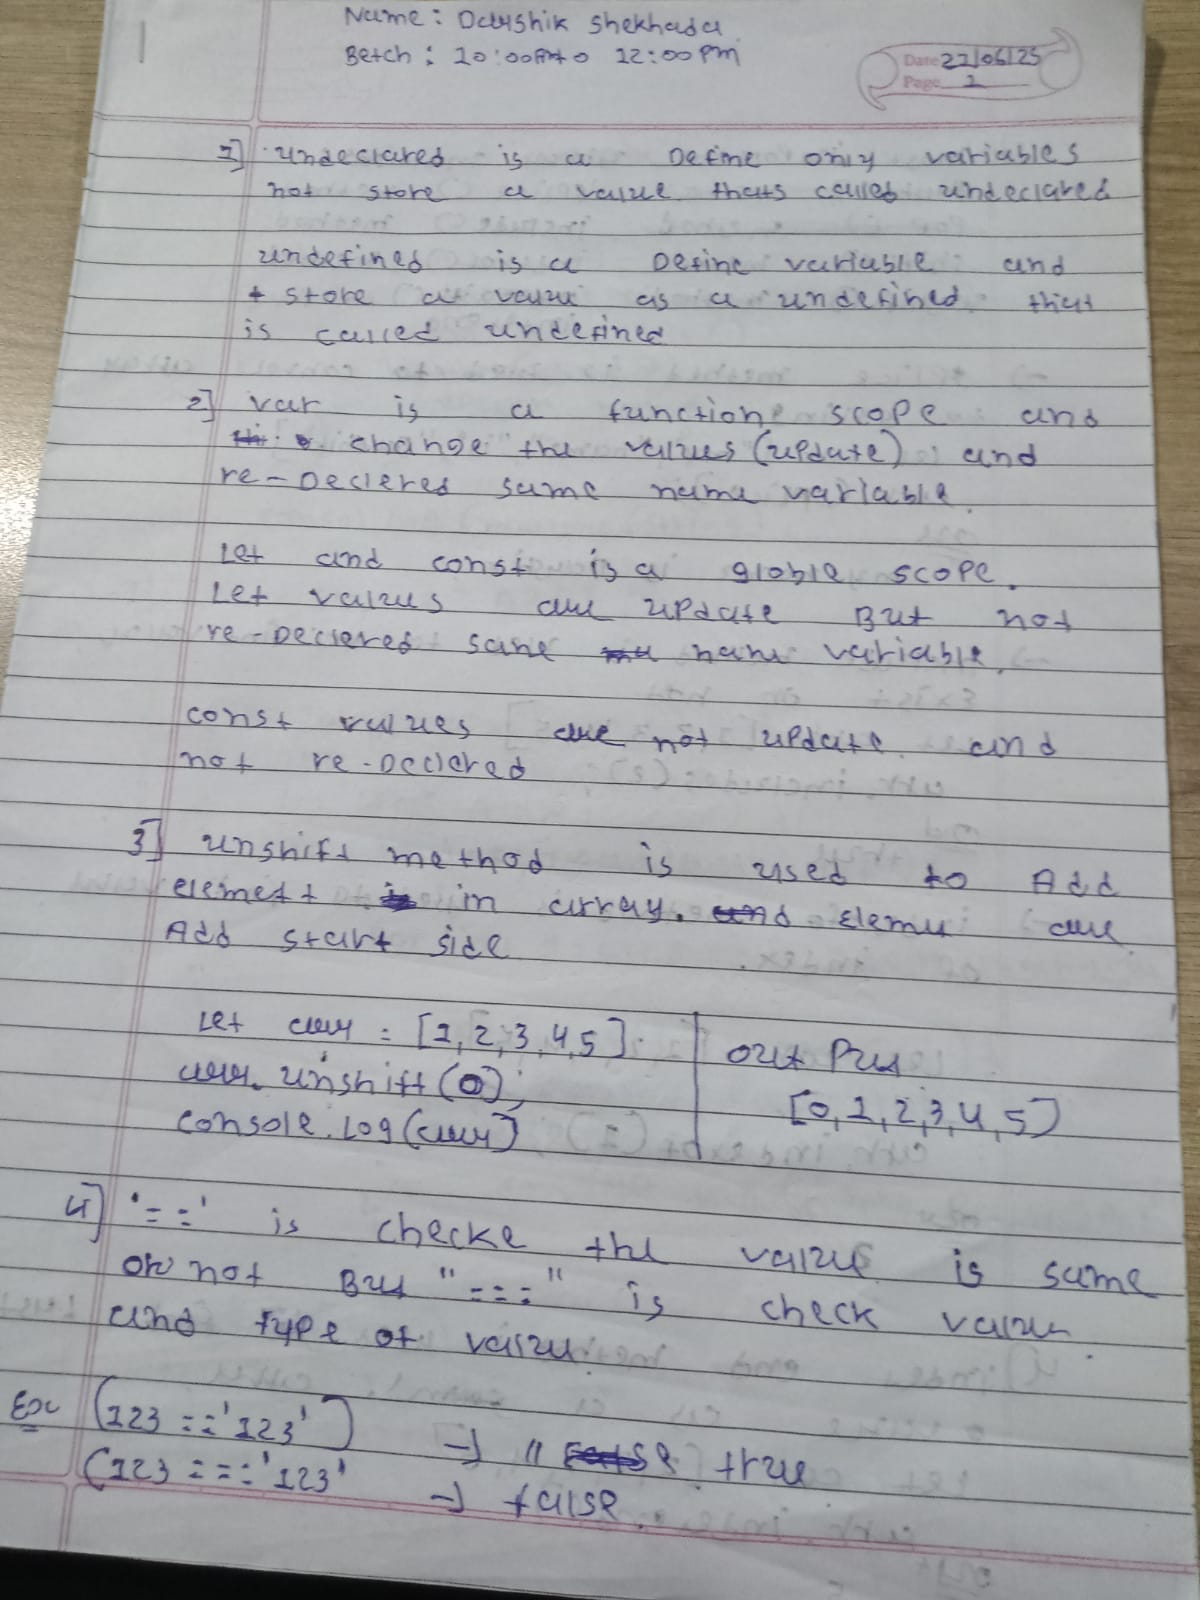 Name: Darshik Shekhada
Betch: 10:00AM to 12:00PM
Date 21/06/25
Page 1
1] undeclared is a Define only variables
not store a value thats called undeclared
undefined is a Define variable and
store a value as a undefined that
is called undefined
2] var is a function scope and
change the values (update) and
re-Declered same name variable.
Let and const is a globle scope.
Let values are update But not
re-Declered same name variable.
const values are not update and
not re-Declered
3] unshift method is used to Add
element in array. and elemu are
Add start side
Let arr = [1, 2, 3, 4, 5]
arr. unshift(0);
console.log(arr)
out Put
[0, 1, 2, 3, 4, 5]
4] '==' is checke the value is same
or not But "===" is check value
and type of value.
Ex (123 == '123') → " true
(123 === '123' → false.